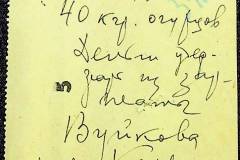 40 кгр. огурцов
Деньги удер-
жать из зар-
платы
5
Вуйкова